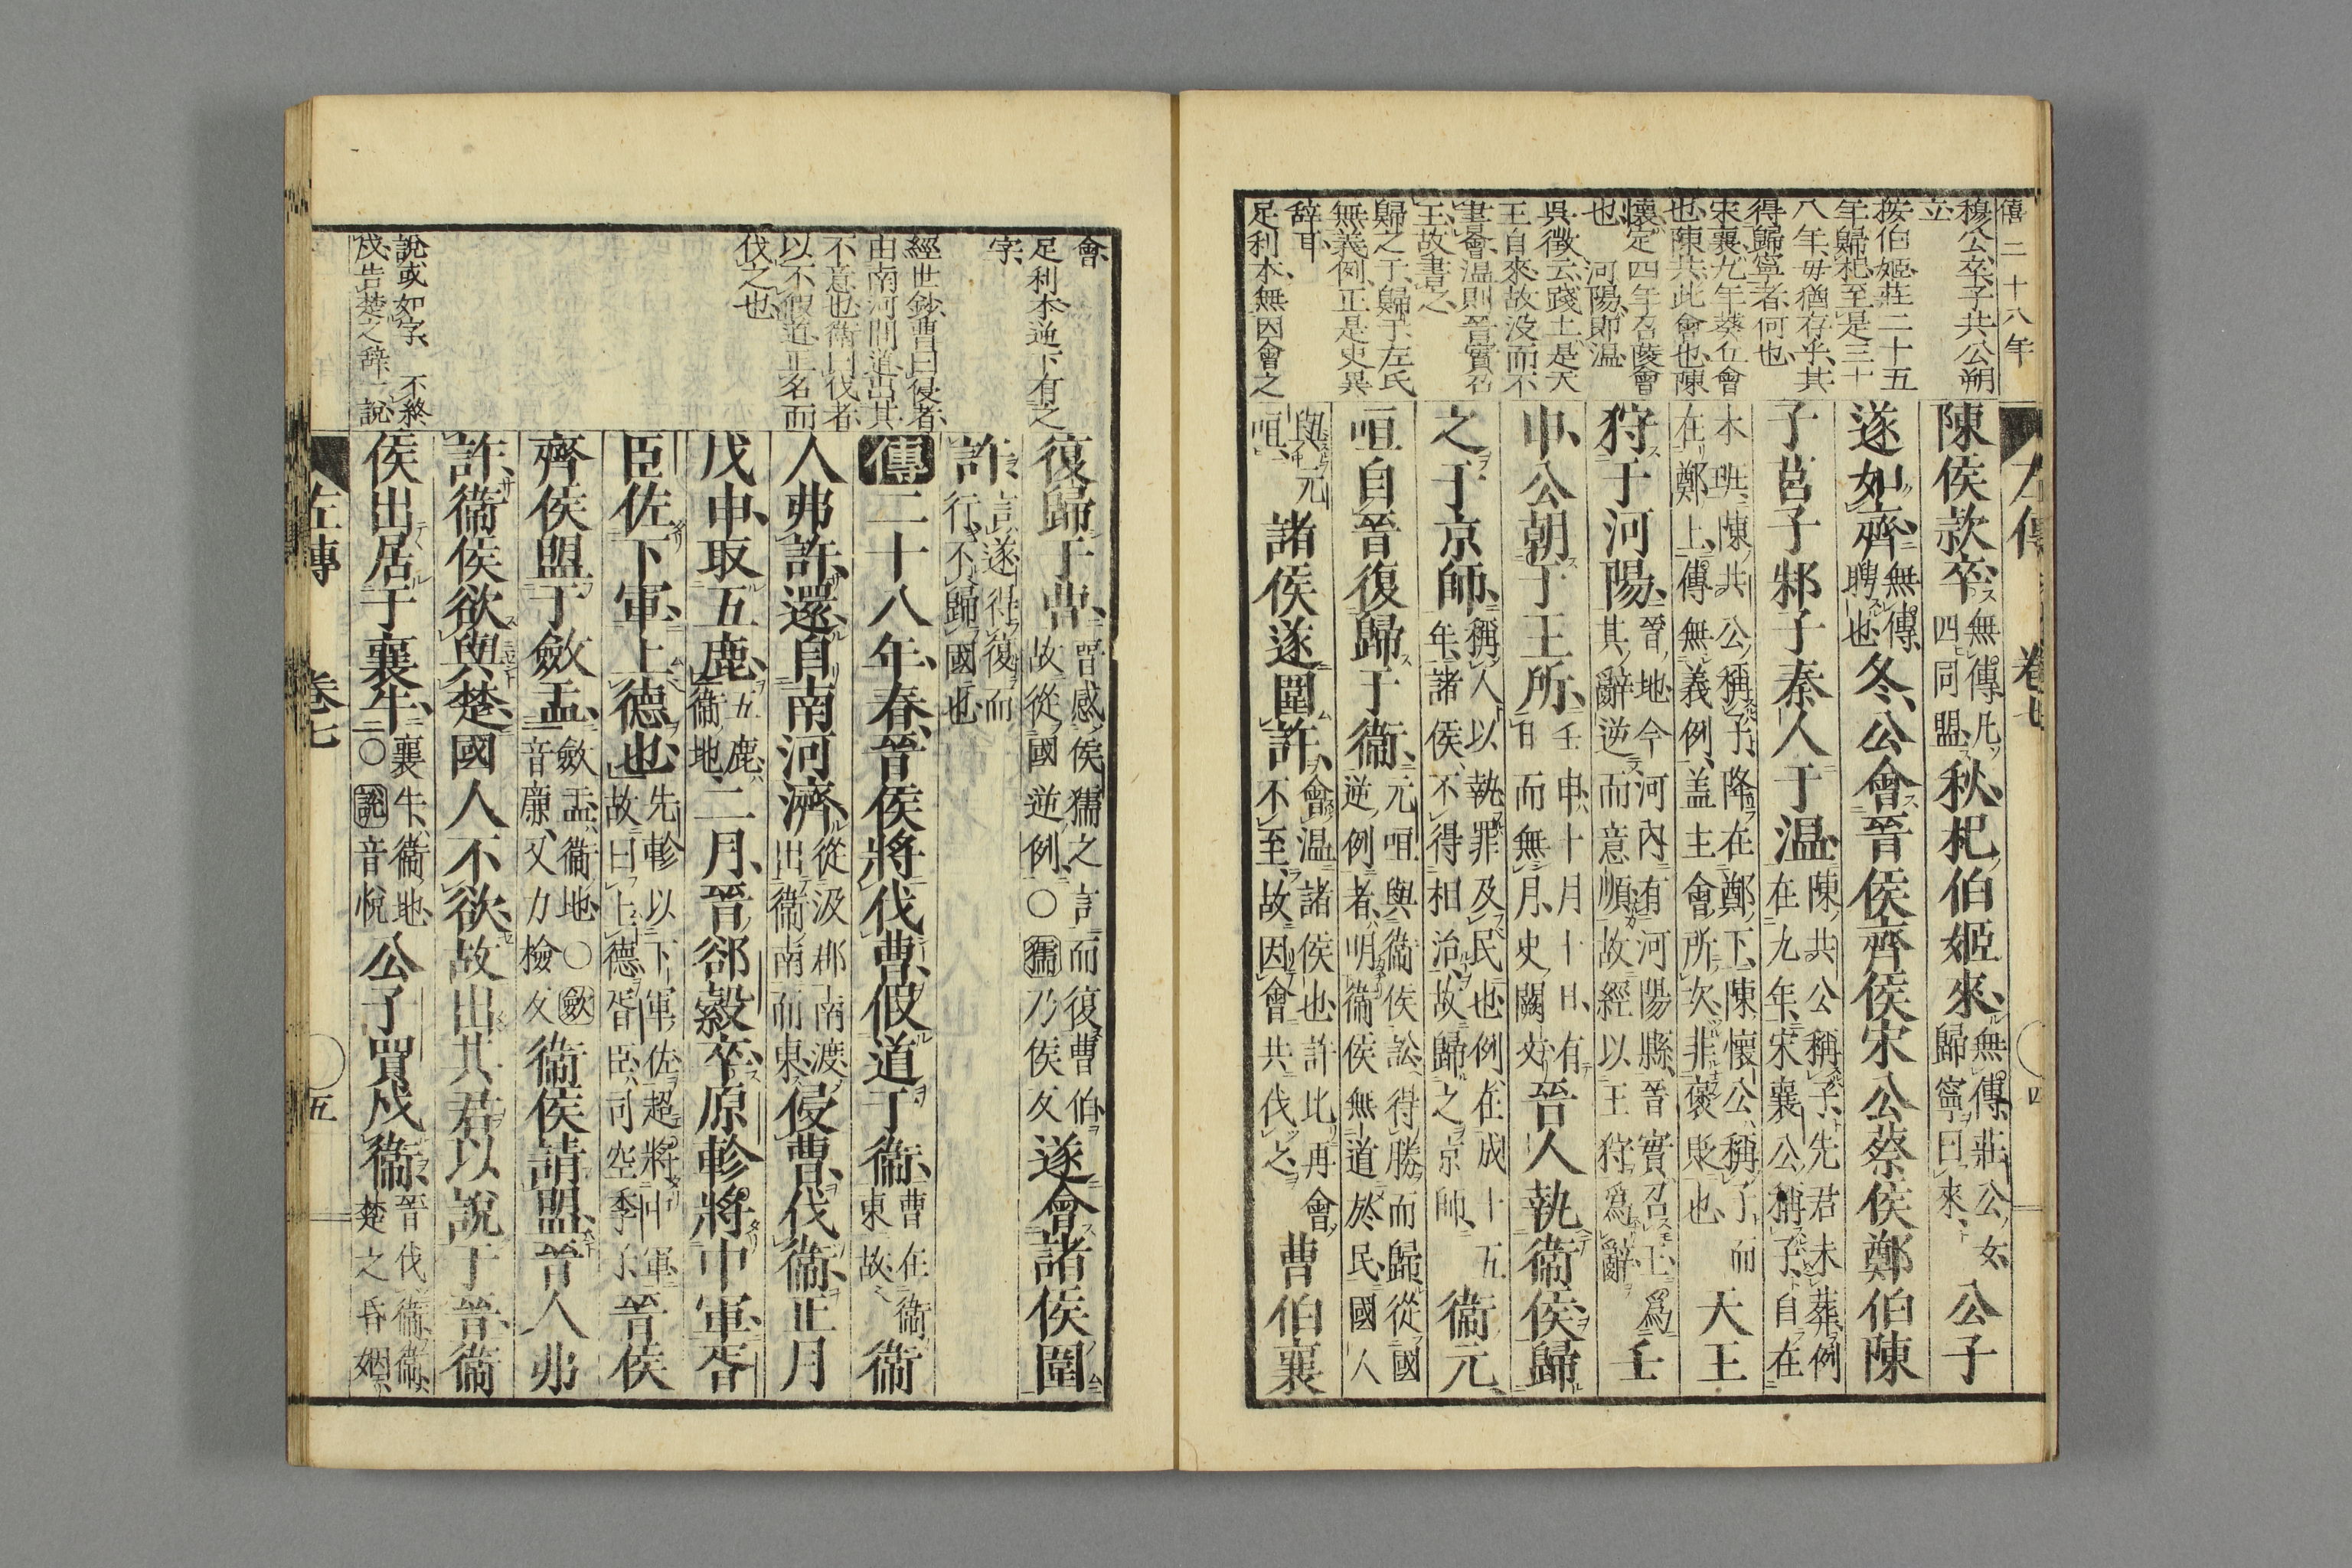 僖二十八年
穆公卒子共公朔
立
按伯姬莊二十五
年歸杞至是三十
八年毋猶存乎其
得歸寧者何也
宋襄九年葵丘會
也陳共此會也陳
懷定四年召陵會
也　河陽即溫
吳徵云踐土是天
王自來故没而不
書會溫則晉實召
王故書之
歸之于歸于左氏
無義例正是史異
辭耳
足利本無因會之
左傳　卷七　四
陳侯款卒無傳凡四同盟秋杞伯姬來無傳莊公女歸寧曰來公子
遂如齊無傳聘也冬公會晉侯齊侯宋公蔡侯鄭伯陳
子莒子邾子秦人于溫陳共公稱子先君未葬例在九年宋襄公稱子自在
本班陳共公稱子降在鄭下陳懷公稱子而在鄭上傳無義例蓋主會所次非褒貶也天王
狩于河陽晉地今河內有河陽縣晉實召王爲其辭逆而意順故經以王狩爲辭壬
申公朝于王所壬申十月十日有日而無月史闕文晉人執衞侯歸
之于京師稱人以執罪及民也例在成十五年諸侯不得相治故歸之京師衞元
咺自晉復歸于衞元咺與衞侯訟得勝而歸從國逆例者明衞侯無道於民國人
與元咺諸侯遂圍許會溫諸侯也許比再會不至故因會共伐之曹伯襄
會
足利本逆下有之
字
經世鈔曹曰侵者
由南河間道出其
不意也衞曰伐者
以不假道正名而
伐之也
說或如字　不終
戍告楚之辭一說
復歸于曹晉感侯獳之言而復曹伯故從國逆例○獳乃侯反遂會諸侯圍
許言遂得復而行不歸國也
傳二十八年春晉侯將伐曹假道于衞曹在衞東故衞
人弗許還自南河濟從汲郡南渡出衞南而東侵曹伐衞正月
戊申取五鹿五鹿衞地二月晉郤縠卒原軫將中軍胥
臣佐下軍上德也先軫以下軍佐超將中軍故曰上德胥臣司空季子晉侯
齊侯盟于斂盂斂盂衞地○斂音廉又力檢反衞侯請盟晉人弗
許衞侯欲與楚國人不欲故出其君以說于晉衞
侯出居于襄牛襄牛衞地○說音悅公子買戍衞晉伐衞衞楚之昏姻
左傳　卷七　五